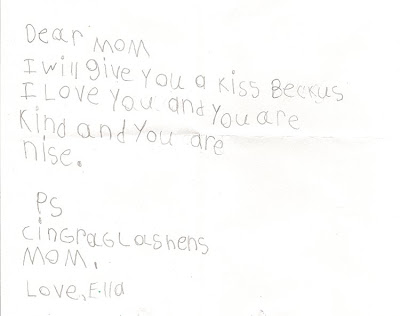 Dear MOM
I will give you a kiss Beckus
I Love You and You are
kind and You are
nise.
PS
cinGraGLashens
MOM.
Love, Ella